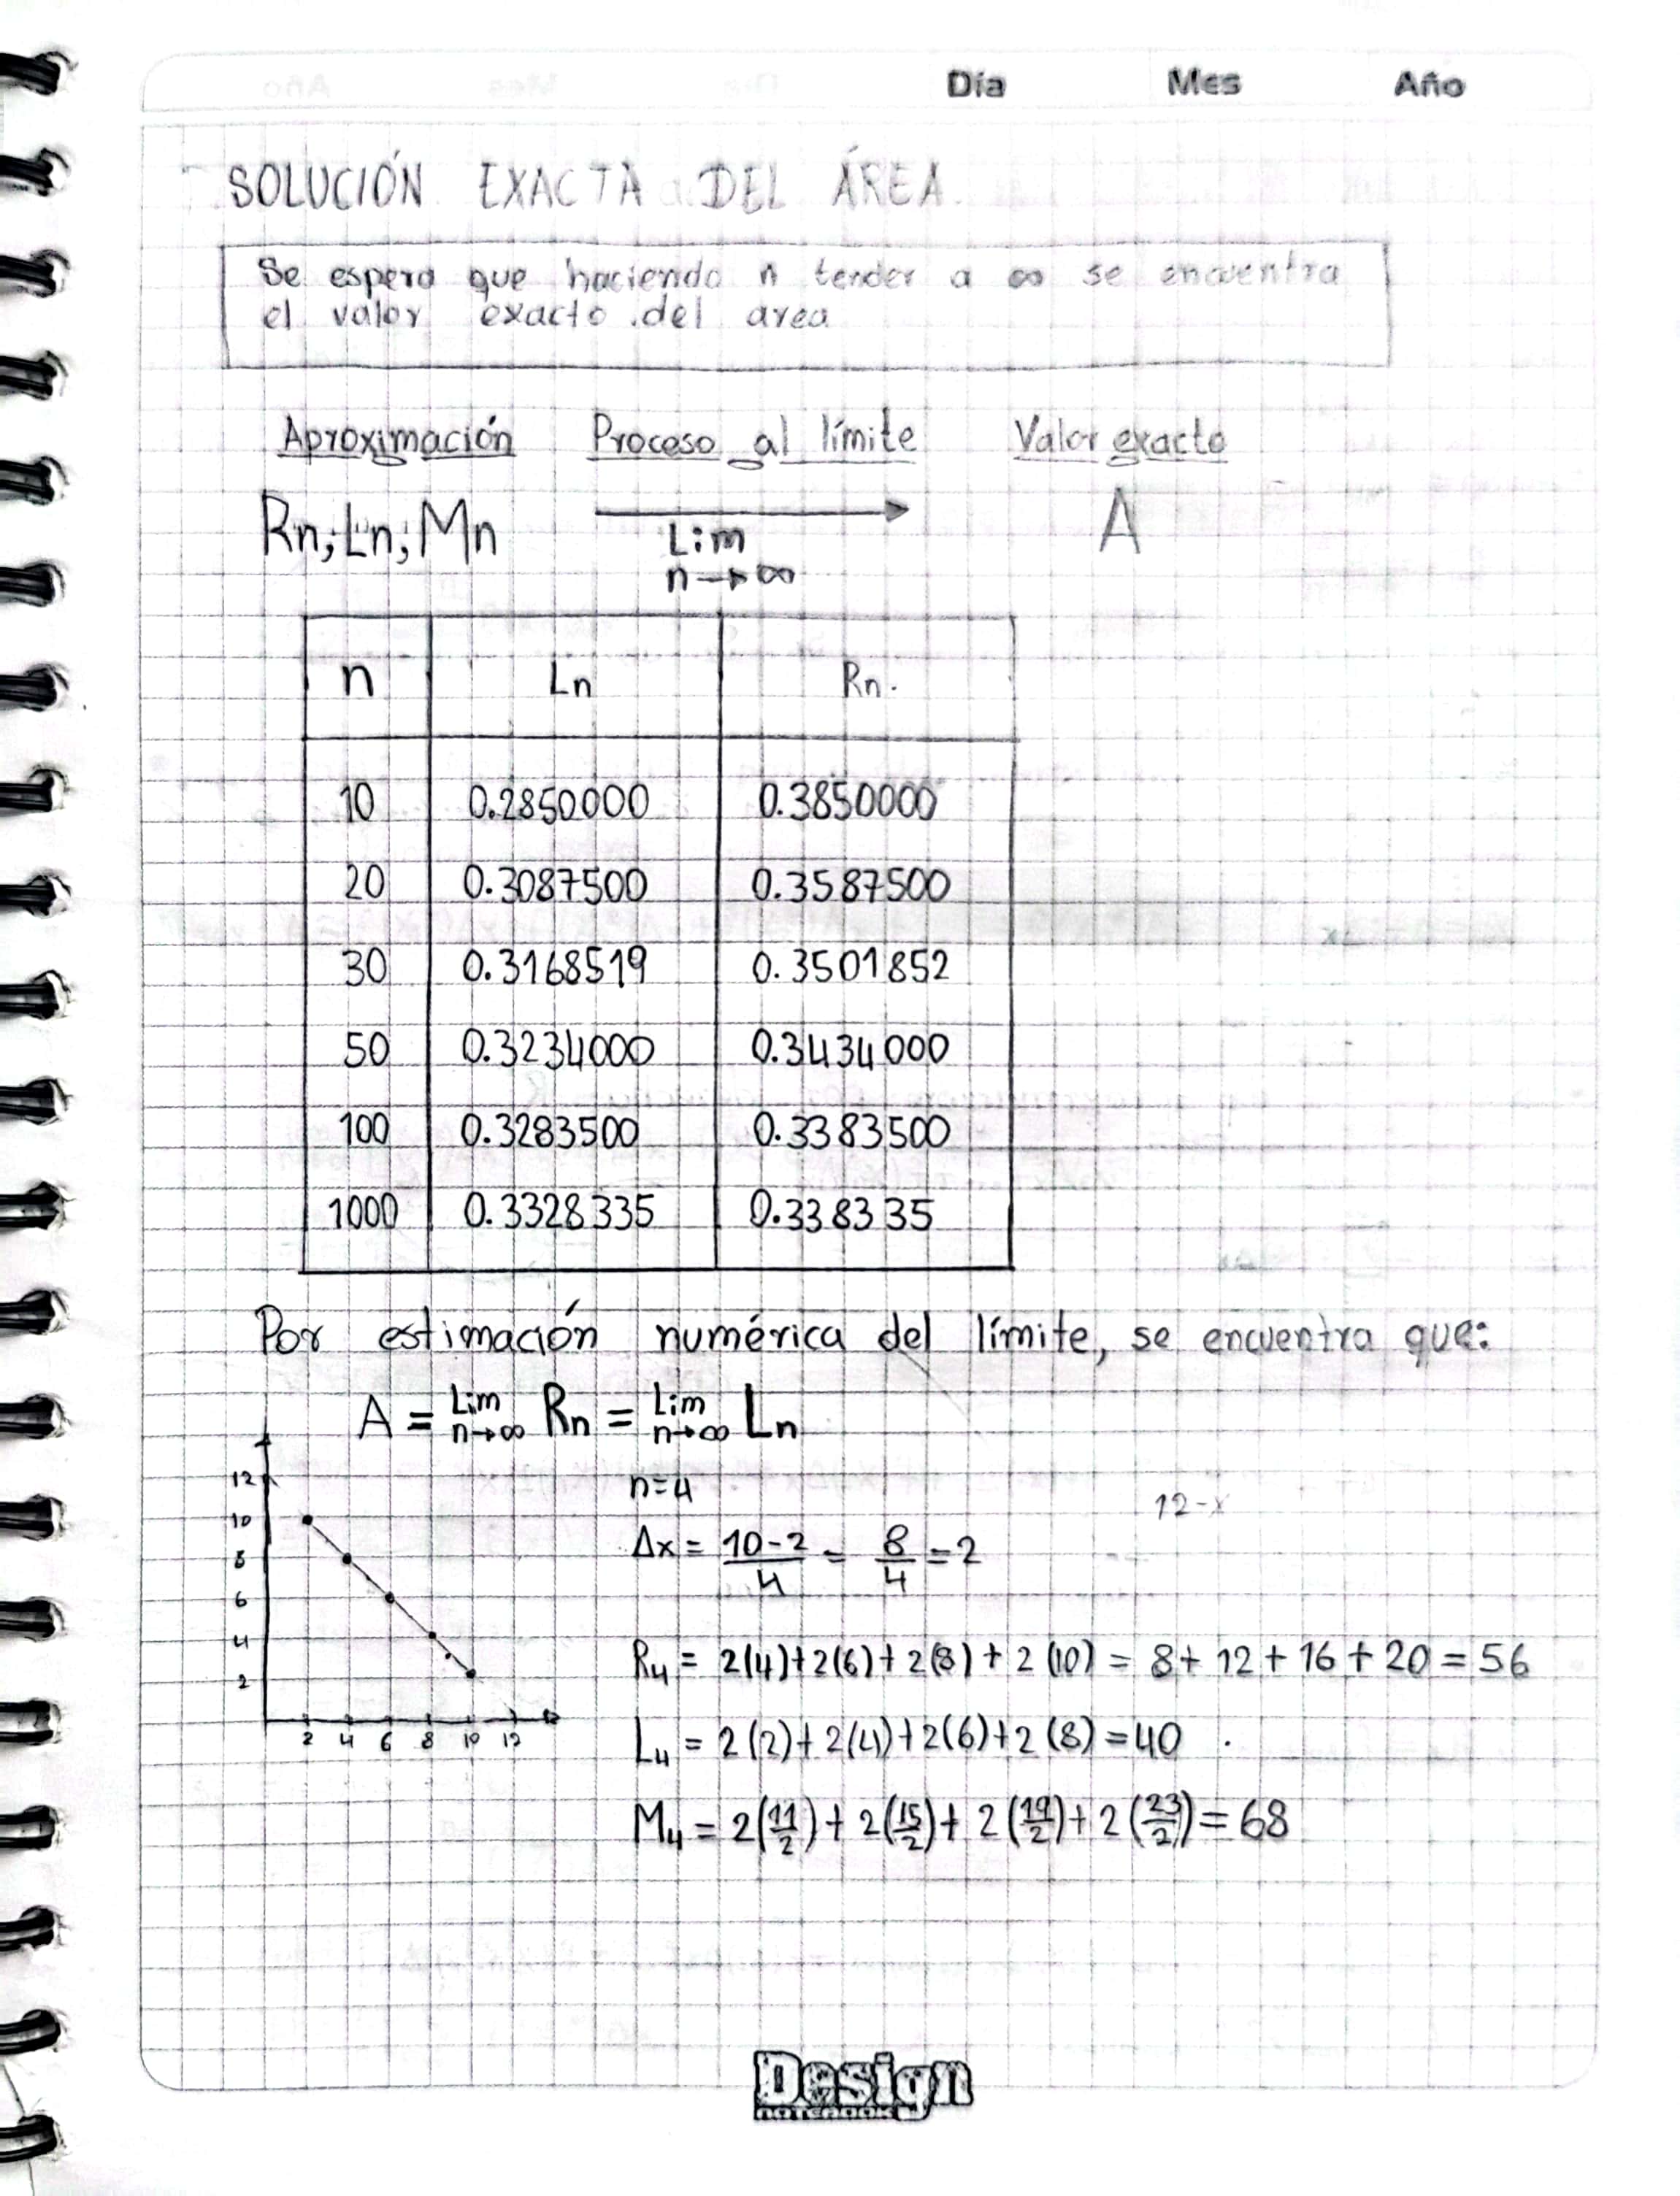 Día Mes Año
SOLUCIÓN EXACTA DEL ÁREA
Se espera que haciendo n tender a ∞ se encuentra
el valor exacto del area
Aproximación Proceso al límite Valor exacto
Rn; Ln; Mn Lim n→∞ A
n Ln Rn.
10 0.2850000 0.3850000
20 0.3087500 0.3587500
30 0.3168519 0.3501852
50 0.3234000 0.3434000
100 0.3283500 0.3383500
1000 0.3328335 0.338335
Por estimación numérica del límite, se encuentra que:
A = Lim n→∞ Rn = Lim n→∞ Ln
12
10
8
6
4
2
2 4 6 8 10 12
n=4
12-x
Δx = 10-2/4 = 8/4 = 2
R4 = 2(4)+2(6)+2(8)+2(10) = 8+12+16+20 = 56
L4 = 2(2)+2(4)+2(6)+2(8) = 40
M4 = 2(11/2)+2(15/2)+2(19/2)+2(23/2) = 68
Design
NOTEBOOK